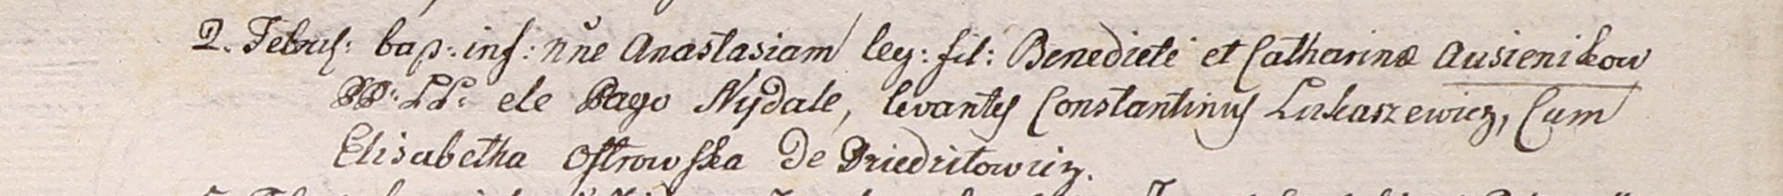 2. Febrs: bap: inf: nñe Anastasiam leg: fil: Benedicti et Catharinæ Ausienikow
PP: LL: de Pago Nydale, levantes Constantinus Lukaszewicz, Cum
Elisabetha Ostrowska de Dziedzitowicz.